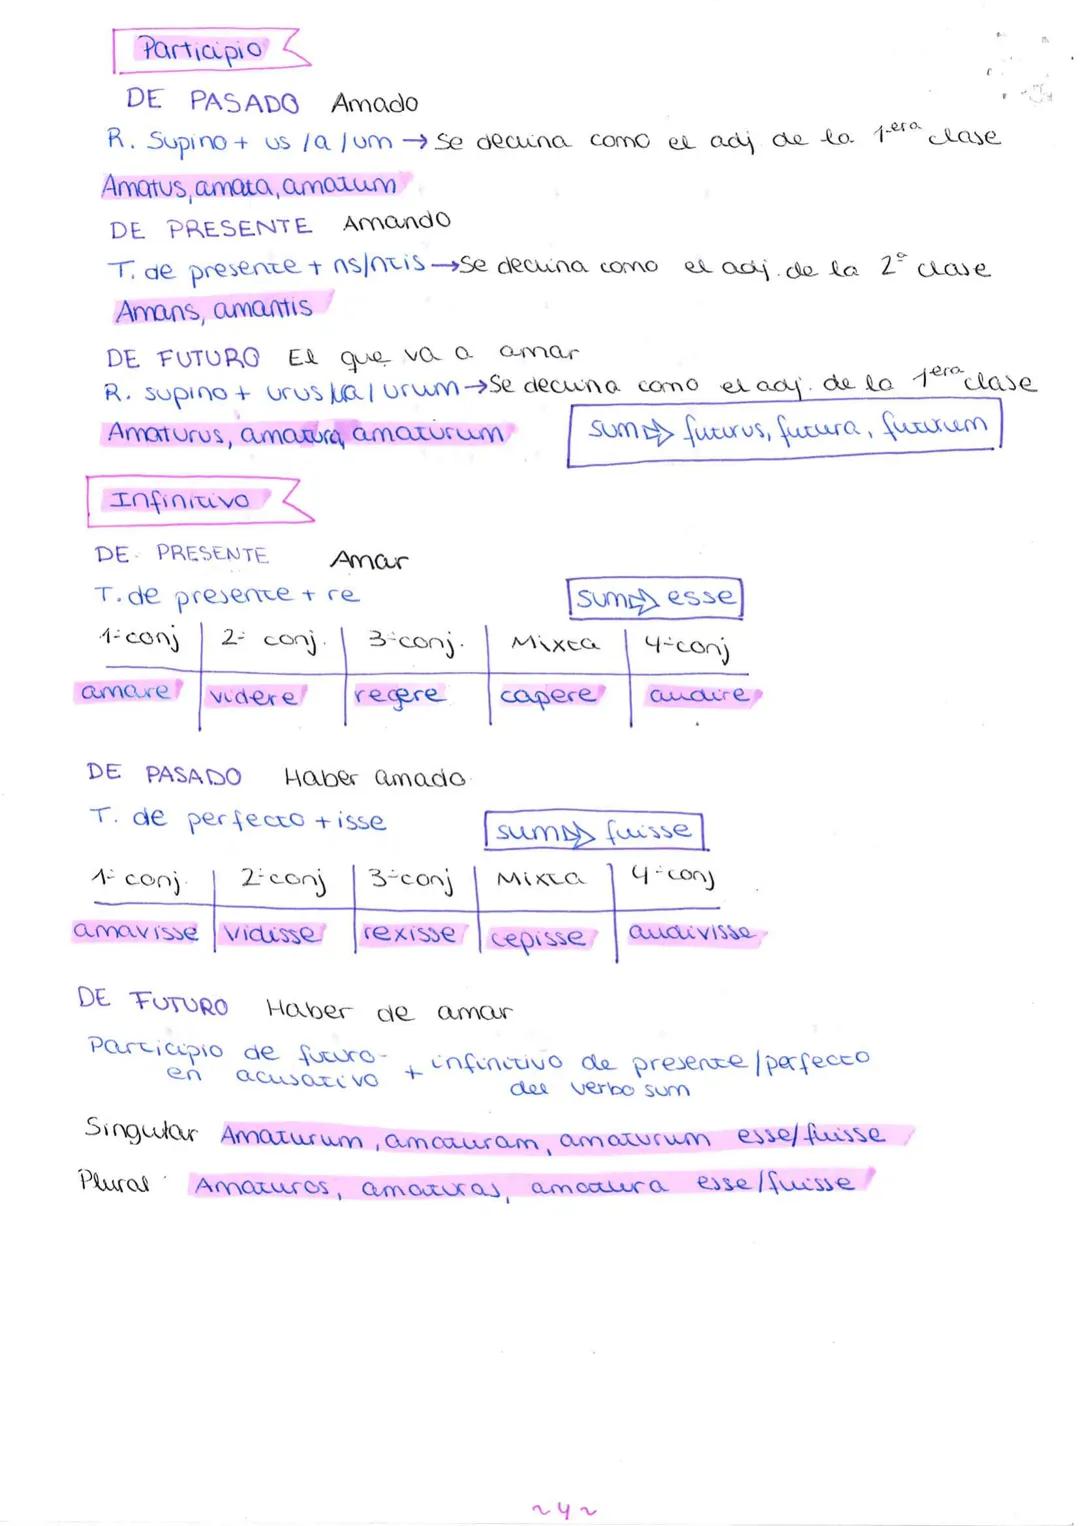 Participio
DE PASADO Amado
R. Supino + us /a /um → Se declina como el adj de la 1era clase
Amatus, amata, amatum
DE PRESENTE Amando
T. de presente + ns/ntis → Se declina como el adj. de la 2ª clase
Amans, amantis
DE FUTURO El que va a amar
R. supino + urus /ura / urum → Se declina como el adj. de la 1era clase
Amaturus, amatura, amaturum
sum ⇒ futurus, futura, futurum
Infinitivo
DE PRESENTE Amar
T. de presente + re
sum ⇒ esse
1ª conj 2ª conj. 3ª conj. Mixta 4ª conj
amare videre regere capere audire
DE PASADO Haber amado
T. de perfecto + isse
sum ⇒ fuisse
1ª conj. 2ª conj 3ª conj Mixta 4ª conj
amavisse vidisse rexisse cepisse audivisse
DE FUTURO Haber de amar
Participio de futuro + infinitivo de presente / perfecto
en acusativo del verbo sum
Singular Amaturum, amaturam, amaturum esse/fuisse
Plural Amaturos, amaturas, amatura esse/fuisse
~4~